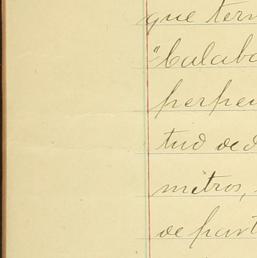 que ter
"Calab
perpen
tud ded
metros,
de part